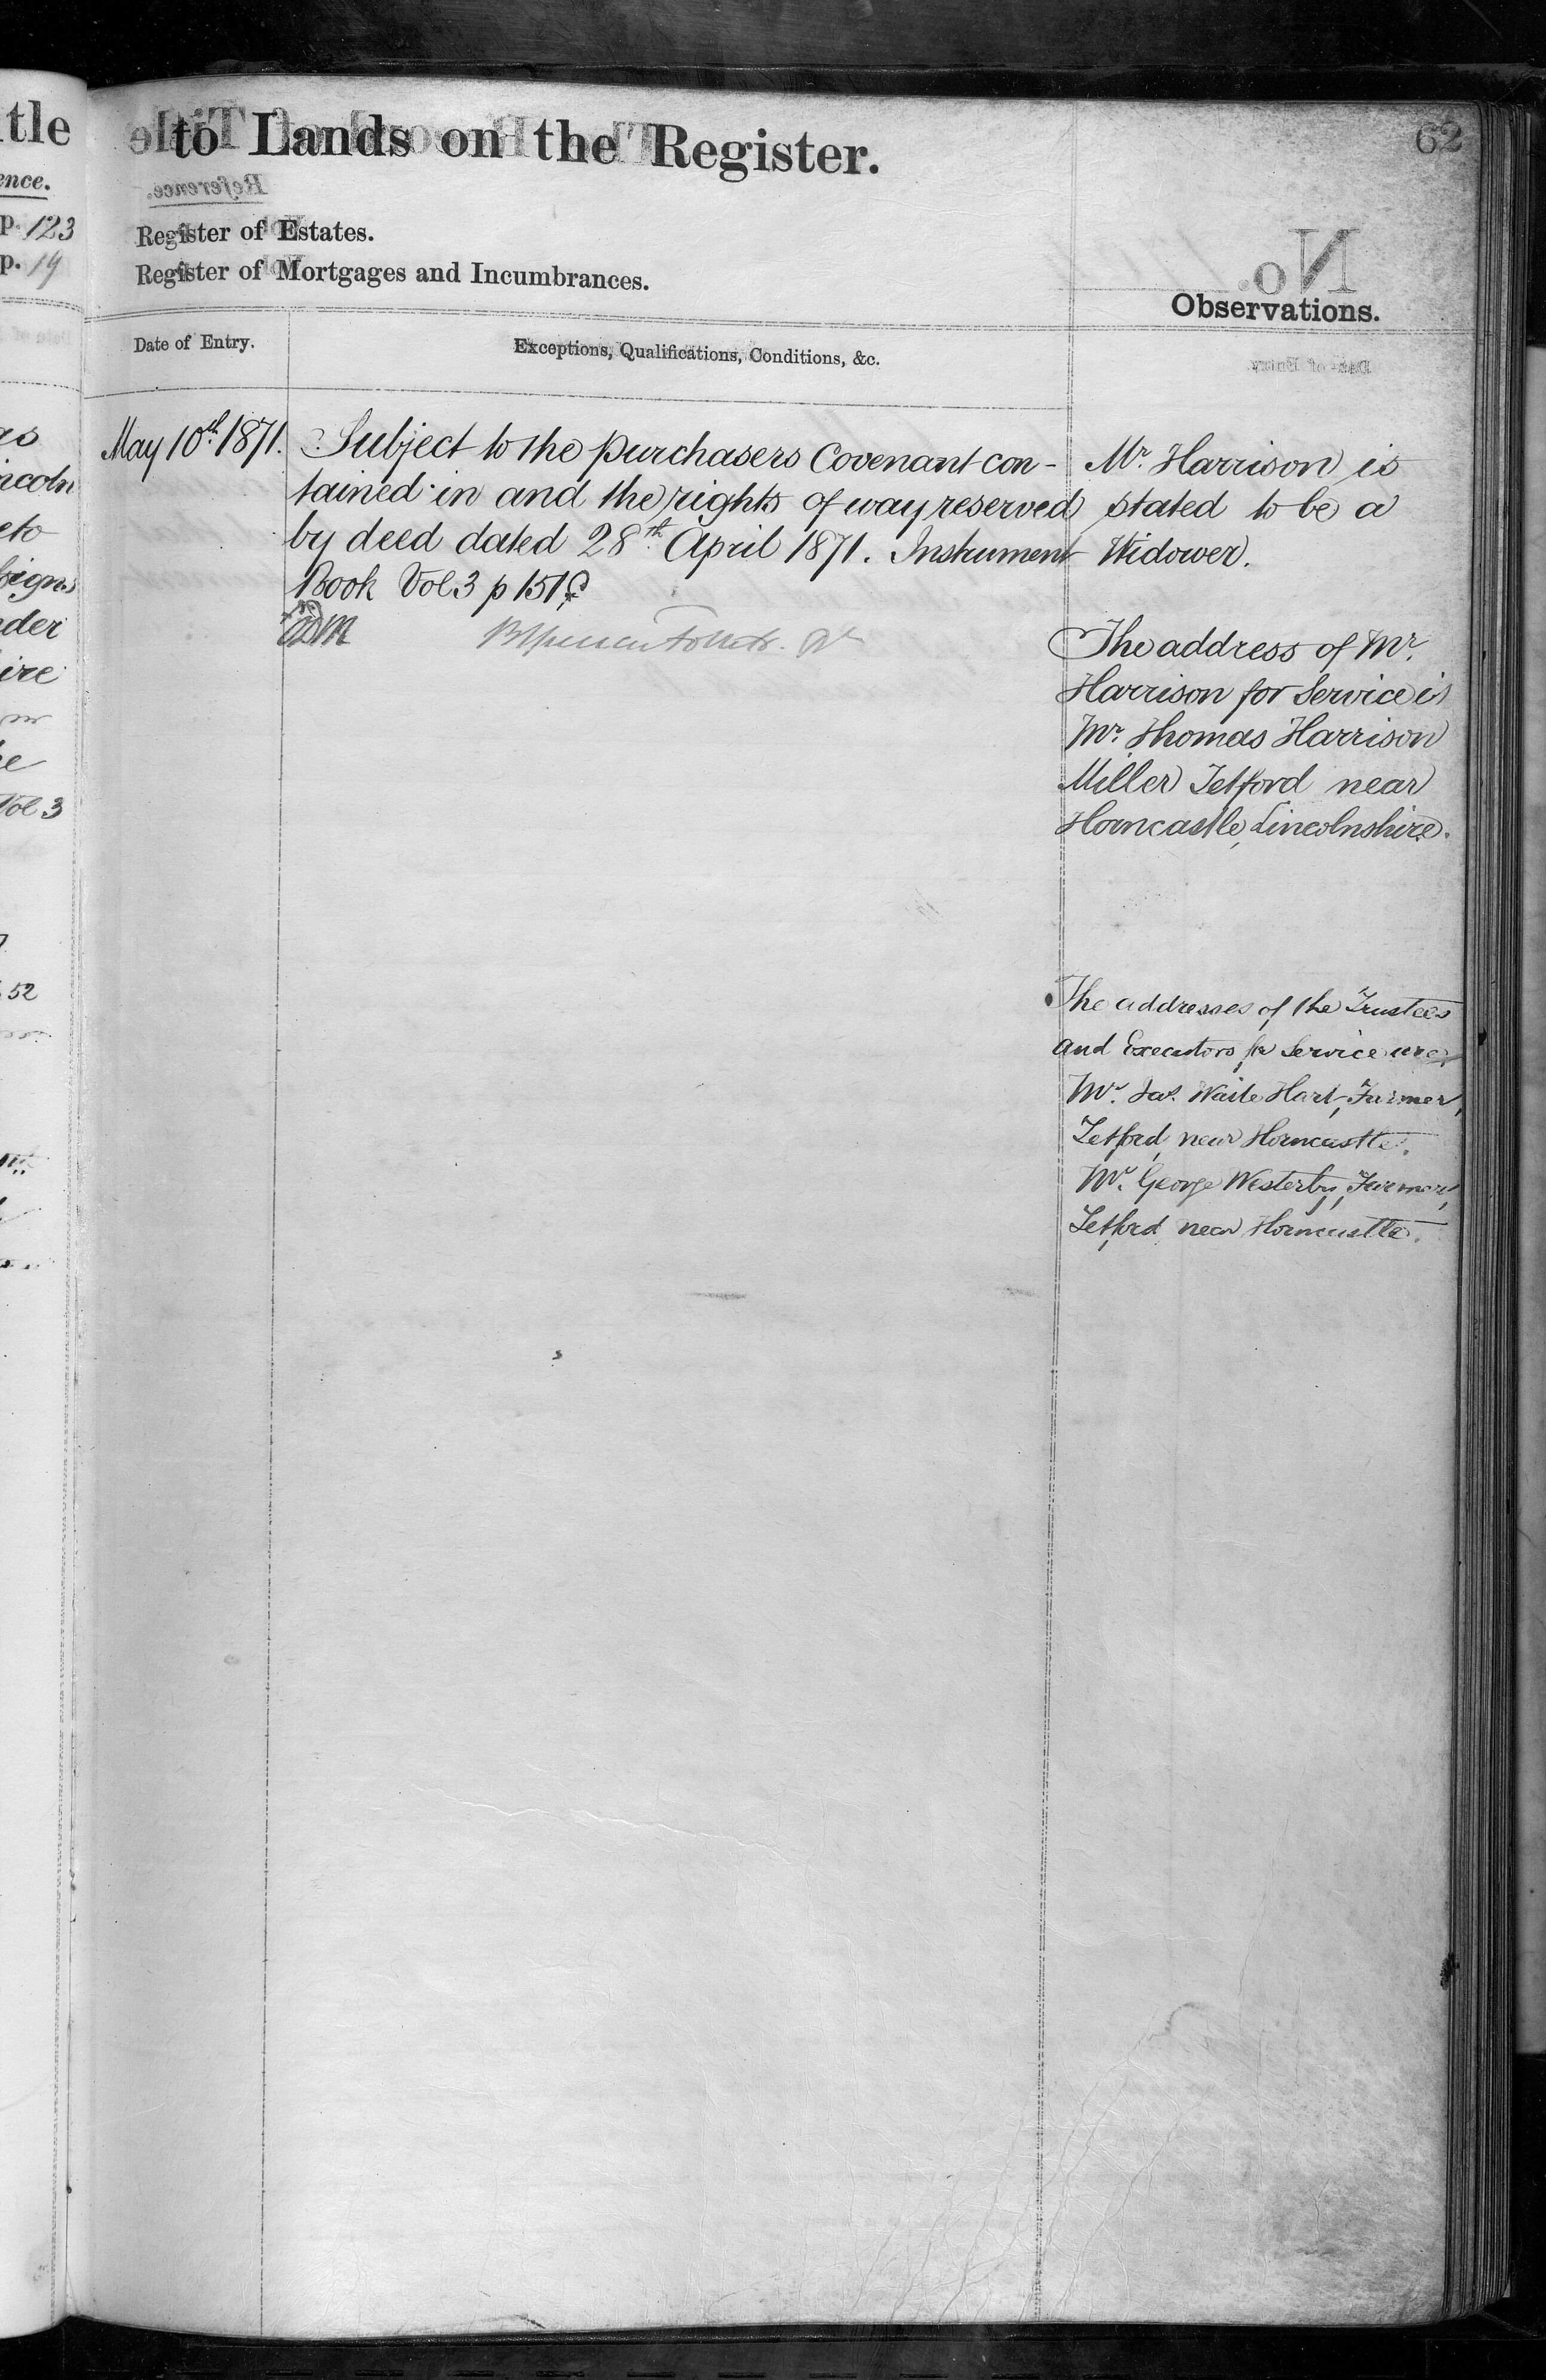 tle
ence.
p. 123
p. 19
as
ncoln
eto
signs
der
ire
he
Vol 3
52
to Lands on the Register.
62
Register of Estates.
Register of Mortgages and Incumbrances.
Observations.
Date of Entry.
Exceptions, Qualifications, Conditions, &c.
May 10th 1871.
Subject to the purchasers Covenant con-
tained in and the rights of way reserved
by deed dated 28th April 1871. Instrument
Book Vol 3 p 151
Mr. Harrison is
stated to be a
Widower.
The address of Mr.
Harrison for Service is
Mr. Thomas Harrison
Miller Tetford near
Horncastle, Lincolnshire.
The addresses of the Trustees
and Executors for Service are
Mr. Jas. Waite Hart, Farmer,
Tetford, near Horncastle.
Mr. George Westerby, Farmer,
Tetford near Horncastle.